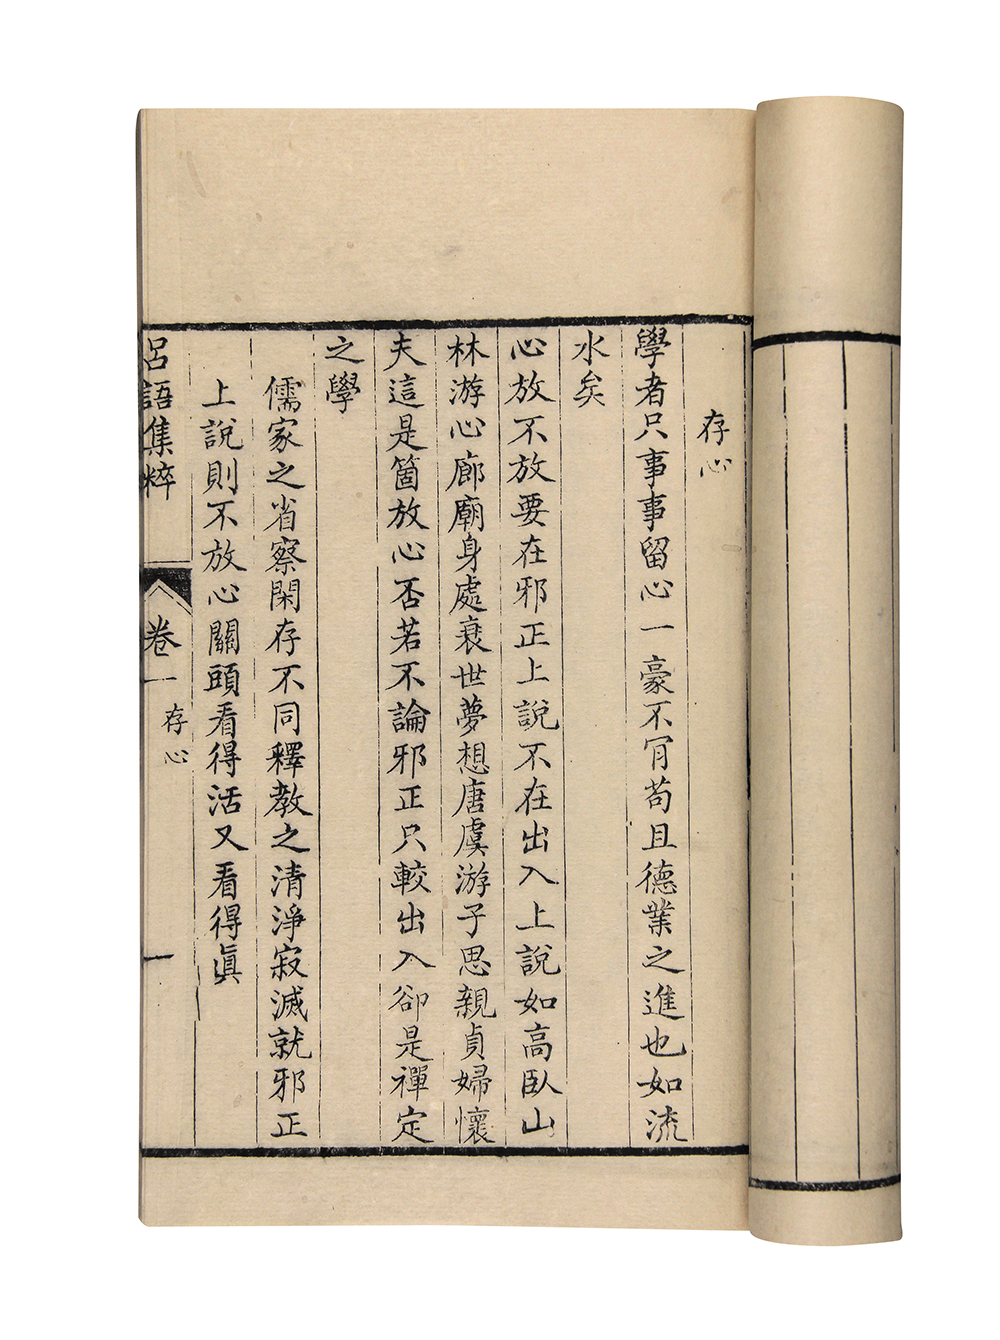 存心
學者只事事留心一豪不肎苟且德業之進也如流
水矣
心放不放要在邪正上說不在出入上說如高臥山
林游心廊廟身處衰世夢想唐虞游子思親貞婦懷
夫這是箇放心否若不論邪正只較出入卻是禪定
之學
儒家之省察閑存不同釋教之清淨寂滅就邪正
上說則不放心關頭看得活又看得眞
呂語集粹
卷一
存心
一